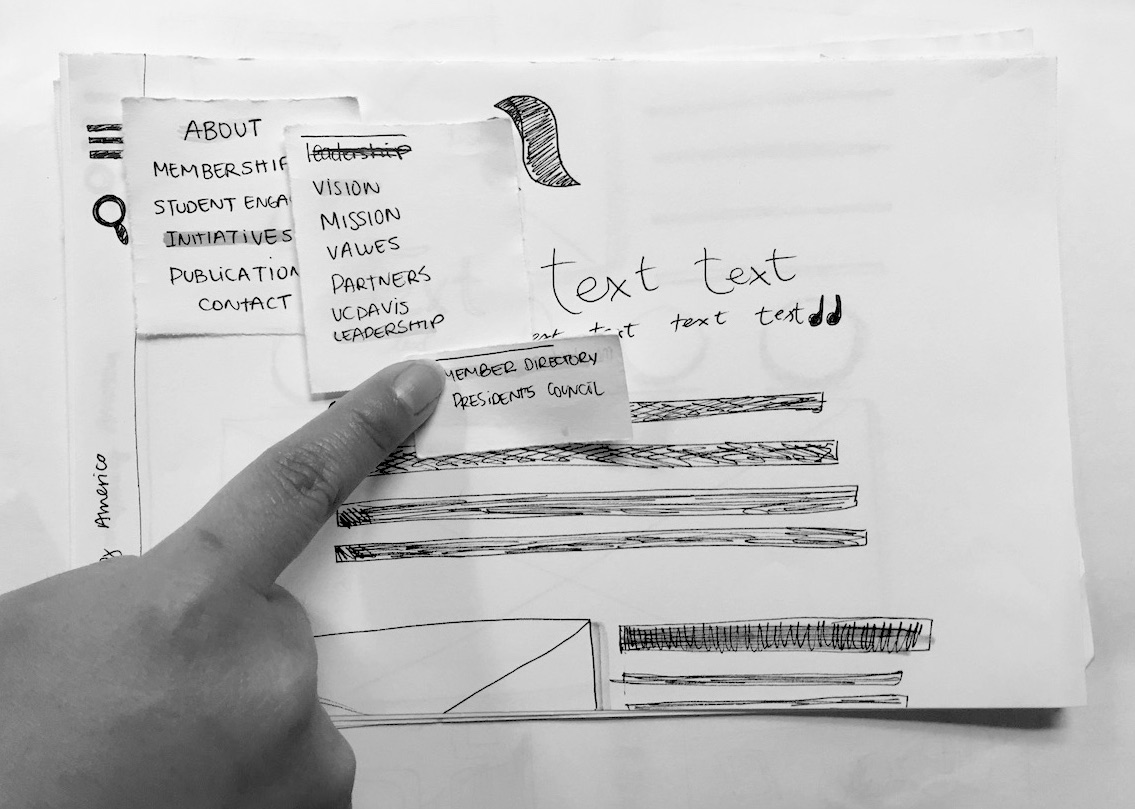 ABOUT
MEMBERSHIP
STUDENT ENGA
INITIATIVES
PUBLICATION
CONTACT
leadership
VISION
MISSION
VALUES
PARTNERS
UCDAVIS
LEADERSHIP
MEMBER DIRECTORY
PRESIDENTS COUNCIL
text text
text text test
Americo